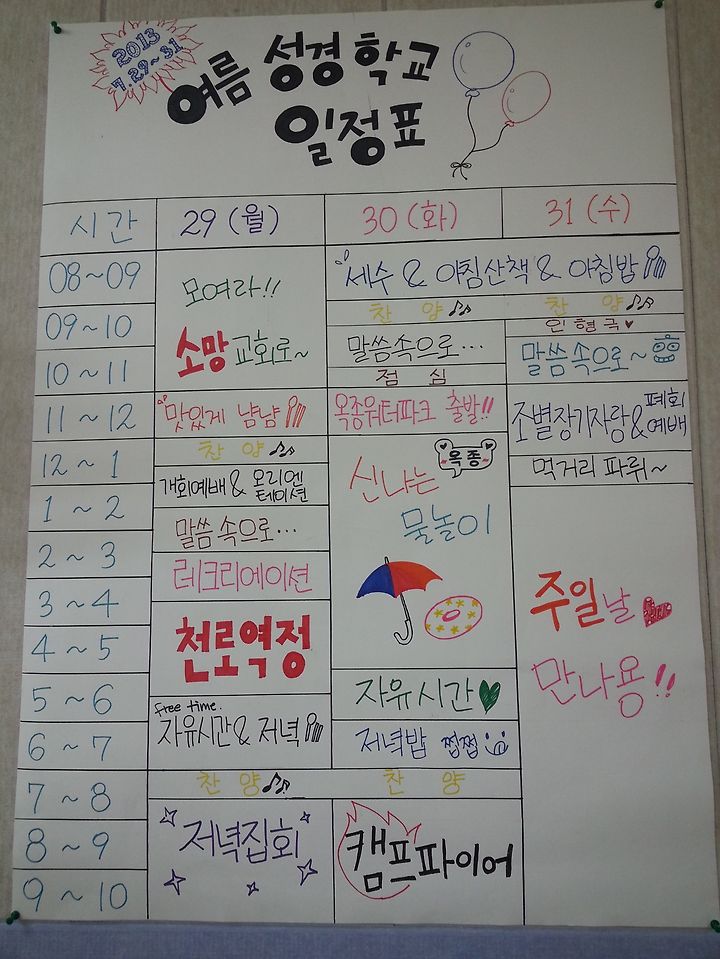 2013
7.29~31
여름 성경학교
일정표
시간 29(월) 30(화) 31(수)
08~09
09~10
10~11
11~12
12~1
1~2
2~3
3~4
4~5
5~6
6~7
7~8
8~9
9~10
모여라!!
소망교회로~
맛있게 냠냠
찬양
개회예배 & 오리엔
테이션
말씀속으로...
레크리에이션
천로역정
free time.
자유시간 & 저녁
찬양
저녁집회
세수 & 아침산책 & 아침밥
찬양
말씀속으로...
점심
옥종워터파크 출발!!
옥종
신나는
물놀이
자유시간
저녁밥 쩝쩝
찬양
캠프파이어
찬양
인형극
말씀속으로~
조별장기자랑& 폐회
예배
먹거리 파뤼~
주일날
만나용!!